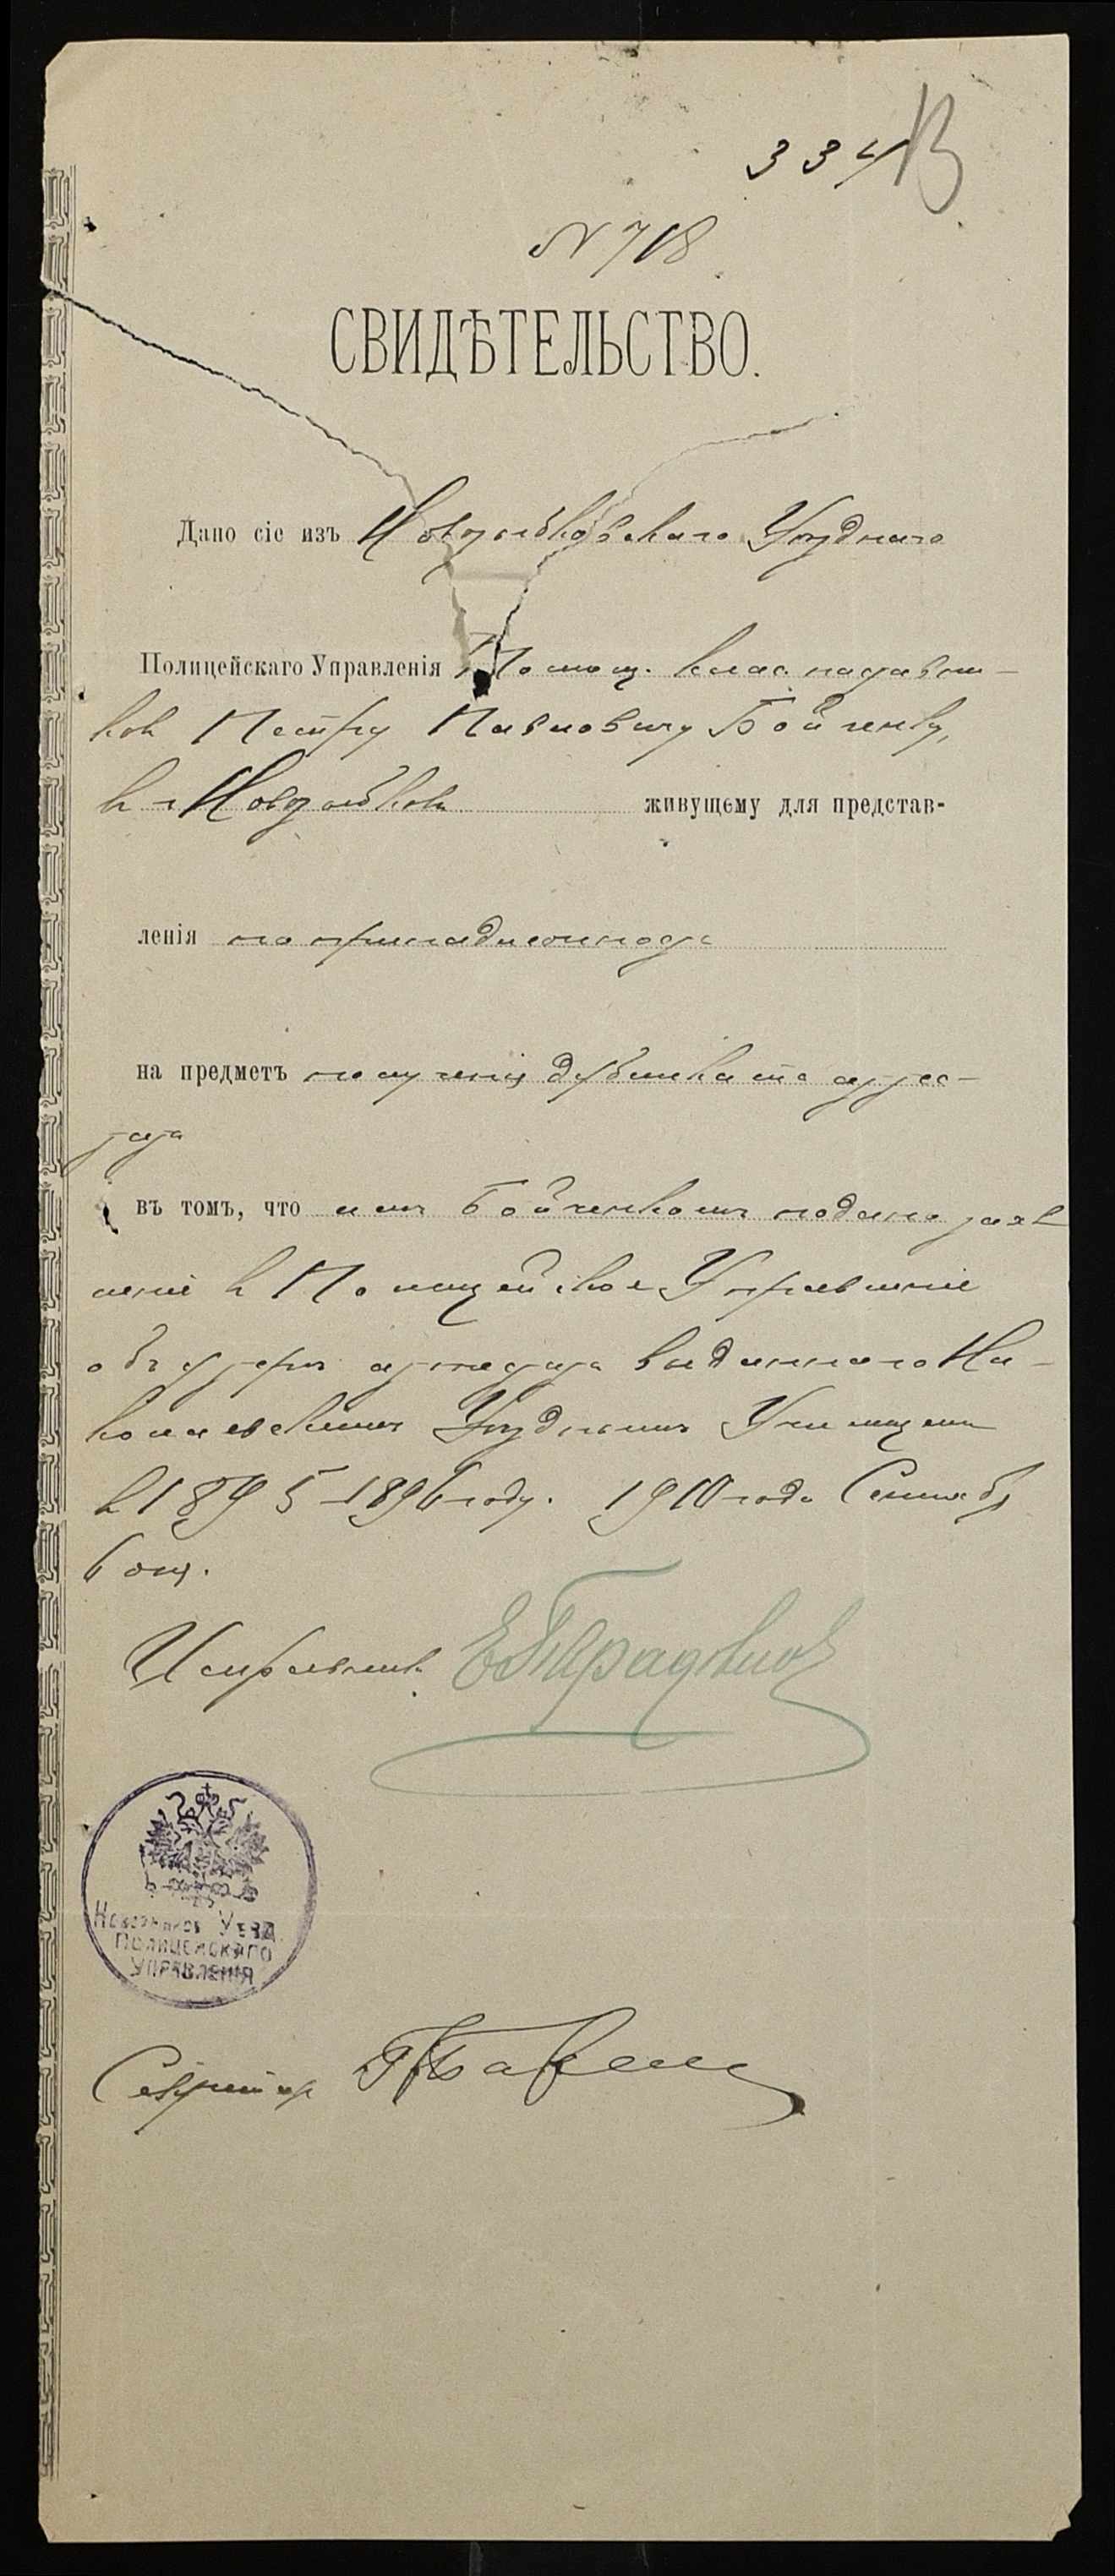 334
В
N 718
СВИДѢТЕЛЬСТВО.
Дано сіе изъ Новозыбковскаго Уѣзднаго
Полицейскаго Управленія Помощ. клас. надзи-
Петру Павловичу Бойченку,
в г. Новозыбковѣ живущему для представ-
ленія по принадлежности
на предметъ полученія дубликата аттес-
тата
въ томъ, что имъ Бойченкомъ подано заяв
леніе в Полицейское Управленіе
объ утери аттестата выданнаго Ни-
колаевскимъ Уѣзднымъ Училищемъ
в 1895-1896 году. 1910 года Сентябр
6 дня.
Исправникъ
Новозыбков Уѣзд.
Полицейскаго
Управленія
Секретарь